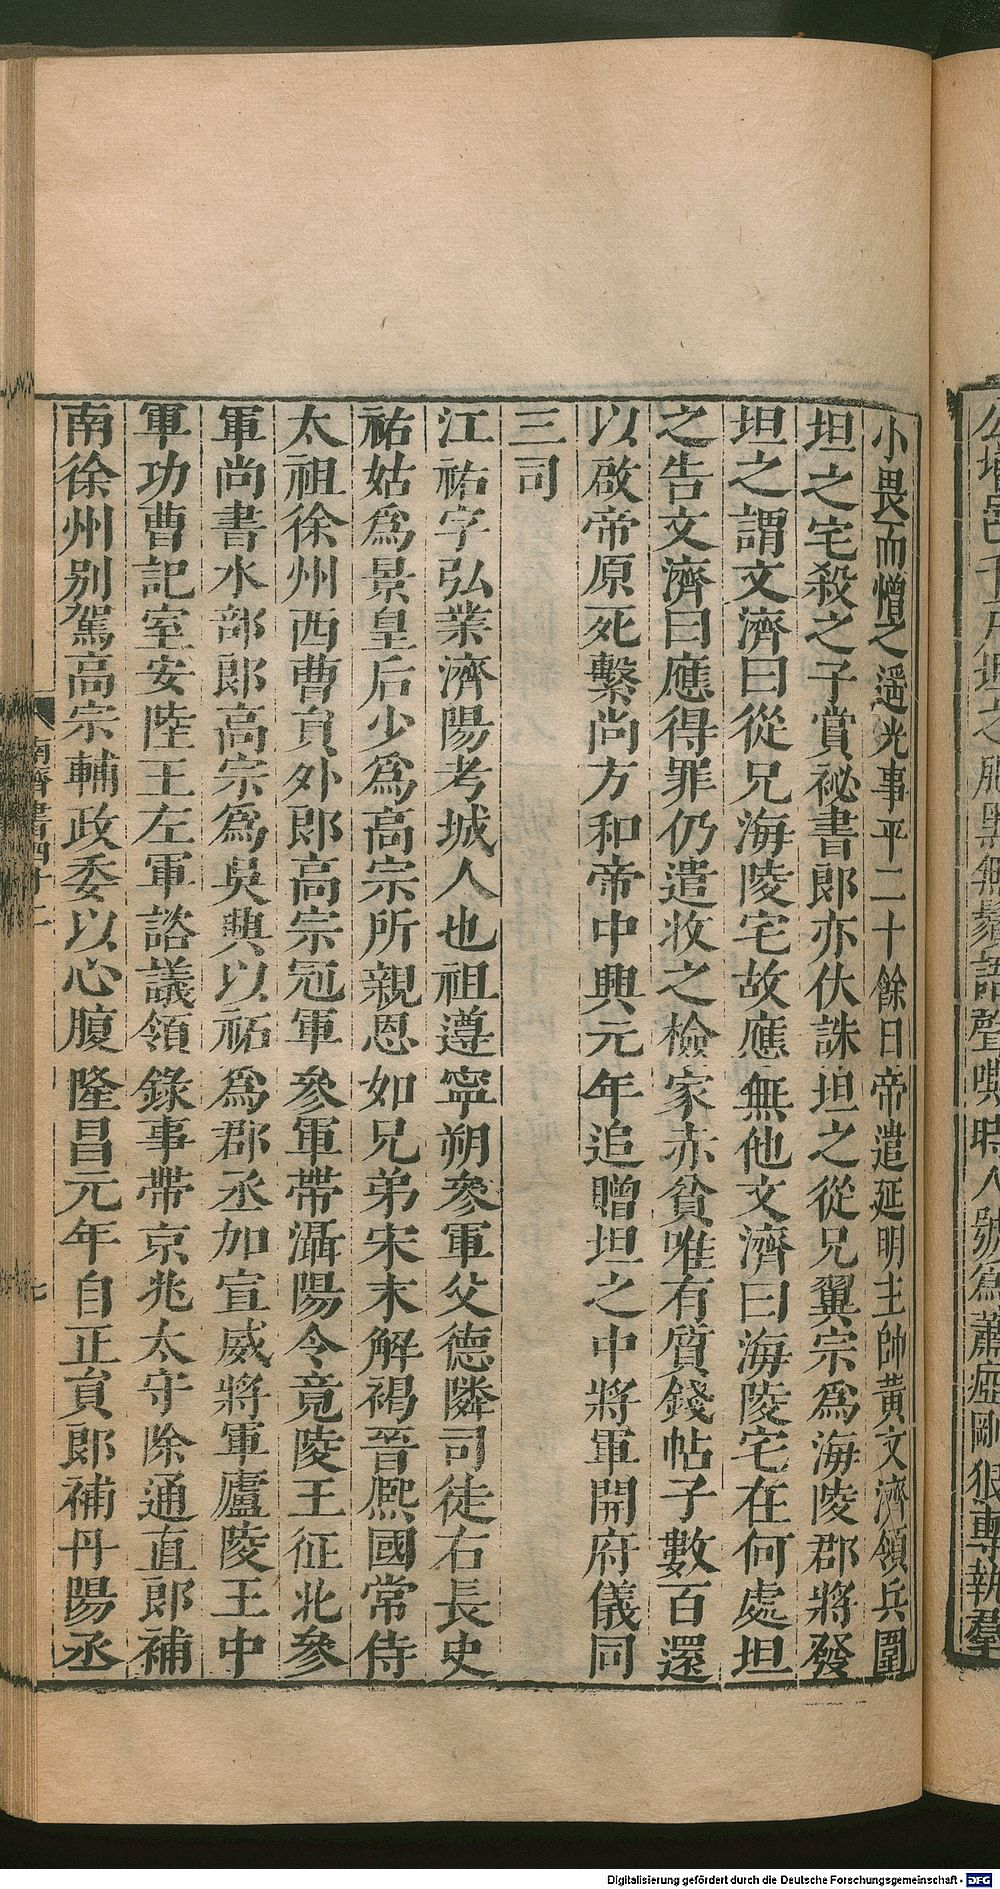 公壻邑千戶坦之肥黑無鬚語聲嘶時人號爲蕭瘂剛狠專執羣
小畏而憎之遥光事平二十餘日帝遣延明主帥黃文濟領兵圍
坦之宅殺之子賞祕書郎亦伏誅坦之從兄翼宗爲海陵郡將發
坦之謂文濟曰從兄海陵宅故應無他文濟曰海陵宅在何處坦
之告文濟曰應得罪仍遣收之檢家赤貧唯有質錢帖子數百還
以啟帝原死繫尚方和帝中興元年追贈坦之中將軍開府儀同
三司
江祏字弘業濟陽考城人也祖遵寧朔參軍父德隣司徒右長史
祏姑爲景皇后少爲高宗所親恩如兄弟宋末解褐晉熈國常侍
太祖徐州西曹負外郎高宗冠軍參軍帶灄陽令竟陵王征北參
軍尚書水部郎高宗爲吳興以祏爲郡丞加宣威將軍廬陵王中
軍功曹記室安陸王左軍諮議領錄事帶京兆太守除通直郎補
南徐州别駕高宗輔政委以心腹隆昌元年自正負郎補丹陽丞
南齊書四十二
七
Digitalisierung gefördert durch die Deutsche Forschungsgemeinschaft - DFG